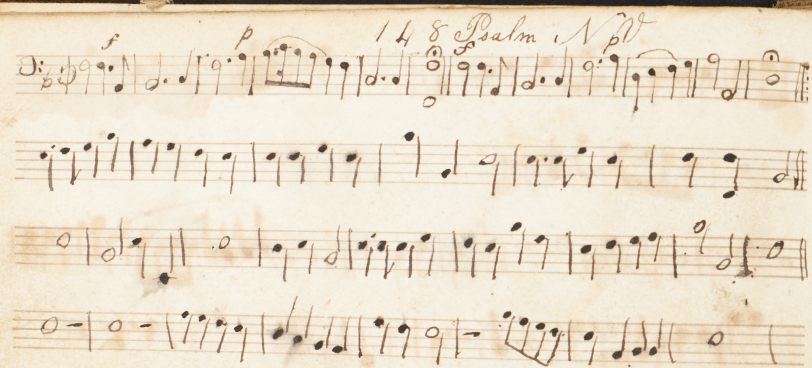 148 Psalm N
f p f p